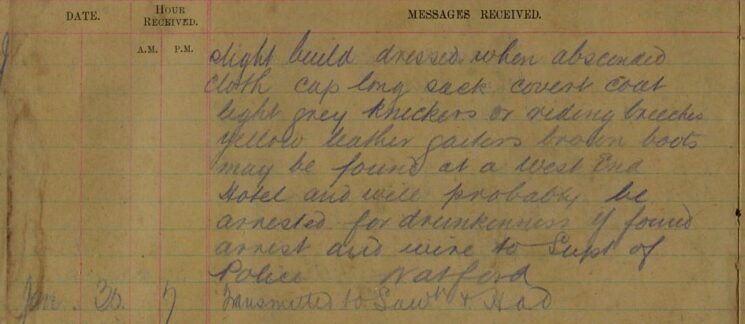 DATE. HOUR RECEIVED. MESSAGES RECEIVED.
A.M. P.M.
slight build dressed when absconded
cloth cap long sack covert coat
light grey knickers or riding breeches
yellow leather gaiters brown boots
may be found at a West End
Hotel and will probably be
arrested for drunkenness if found
arrest and wire to Supt of
Police Watford
Jan 30 7 Transmitted to &